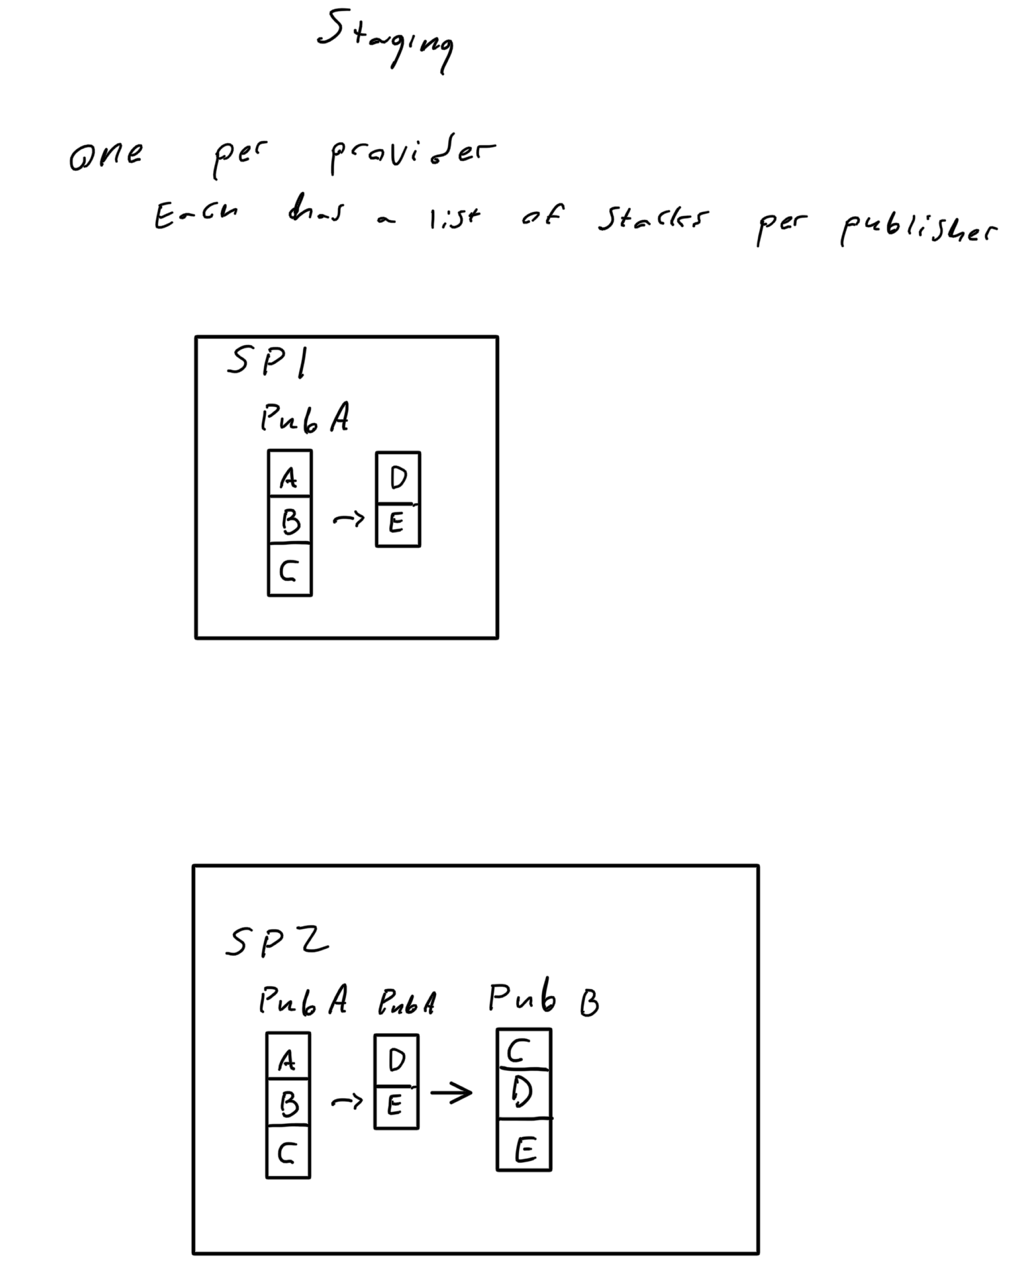 Staging
one per provider
Each has a list of stacks per publisher
SP1
Pub A
A D
B → E
C
SP2
Pub A Pub A Pub B
A D C
B → E → D
C E